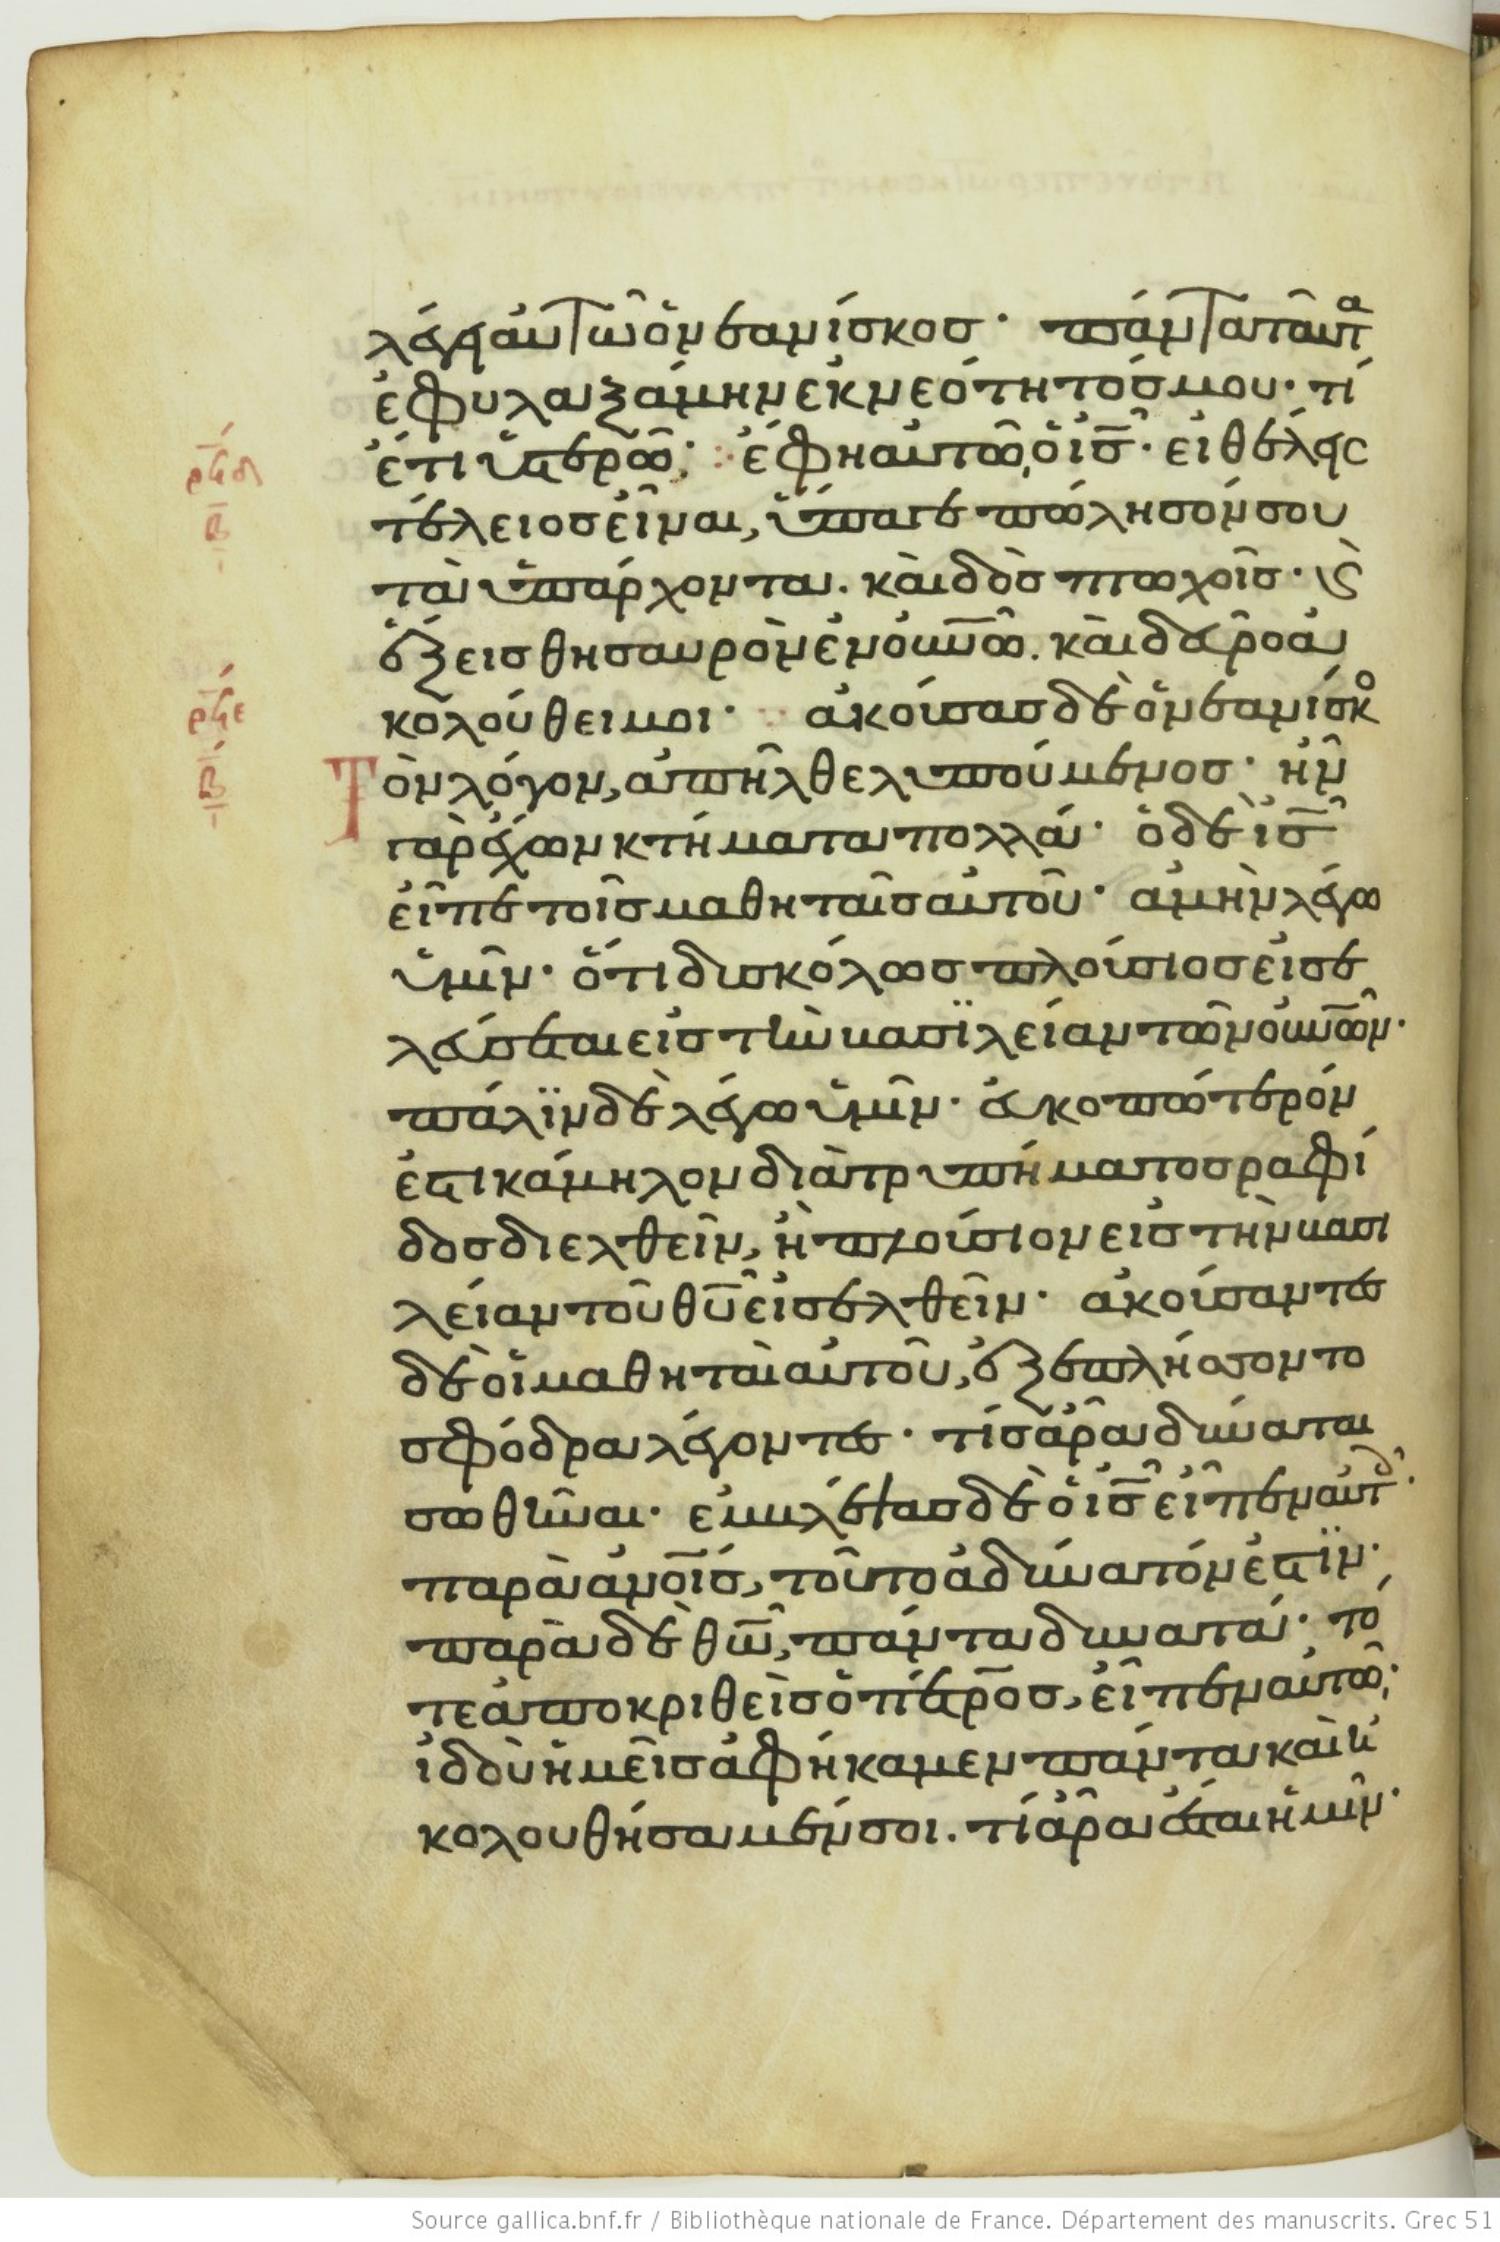 λέγει αὐτῶ ὁ νεανίσκος· πάντα ταῦτα
ἐφυλαξάμην ἐκ νεότητός μου· τί
ἔτι ὑστερῶ; ἔφη αὐτῶ, ὁ ις̅· εἰ θέλεις
ρ̅ϟδ
β̅
τέλειος εἶναι, ὕπαγε πώλησόν σου
τὰ ὑπάρχοντα. καὶ δὸς πτωχοῖς· ϗ
ἕξεις θησαυρὸν ἐν ουνω̅. καὶ δεῦρο ἀ
κολούθει μοι· ἀκούσας δὲ ὁ νεανίσκος
ρ̅ϟε
β̅
Τὸν λόγον, ἀπῆλθε λυπούμενος· ἦν
γὰρ ἔχων κτήματα πολλά· ὁ δὲ ις̅
εἶπε τοῖς μαθηταῖς αὐτοῦ· ἀμὴν λέγω
ὑμῖν· ὅτι δυσκόλως πλούσιος εἰσε
λεύσεται εἰς τὴν βασϊλείαν τῶν ουνω̅ν·
πάλϊν δὲ λέγω ὑμῖν· εὐκοπώτερόν
ἐστι κάμηλον διὰ τρυπήματος ραφί
δος διελθεῖν, ἢ πλούσιον εἰς τὴν βασι
λείαν τοῦ θυ̅ εἰσελθεῖν· ἀκούσαντες
δὲ οἱ μαθηταὶ αὐτοῦ, ἐξεπλήσσοντο
σφόδρα λέγοντες· τίς ἄρα δύναται
σωθῆναι· ἐμβλέψας δὲ ὁ ις̅ εἶπεν αὐτοῖς·
παρὰ ανοι̅ς, τοῦτο ἀδύνατόν ἐστϊν·
παρὰ δὲ θω̅, πάντα δυνατά· τό
τε ἀποκριθεὶς ὁ πέτρος, εἶπεν αὐτῶ·
ἰδοὺ ἡμεῖς ἀφήκαμεν πάντα καὶ ἠ
κολουθήσαμέν σοι. τί ἄρα ἔσται ἡμῖν·
Source gallica.bnf.fr / Bibliothèque nationale de France. Département des manuscrits. Grec 51